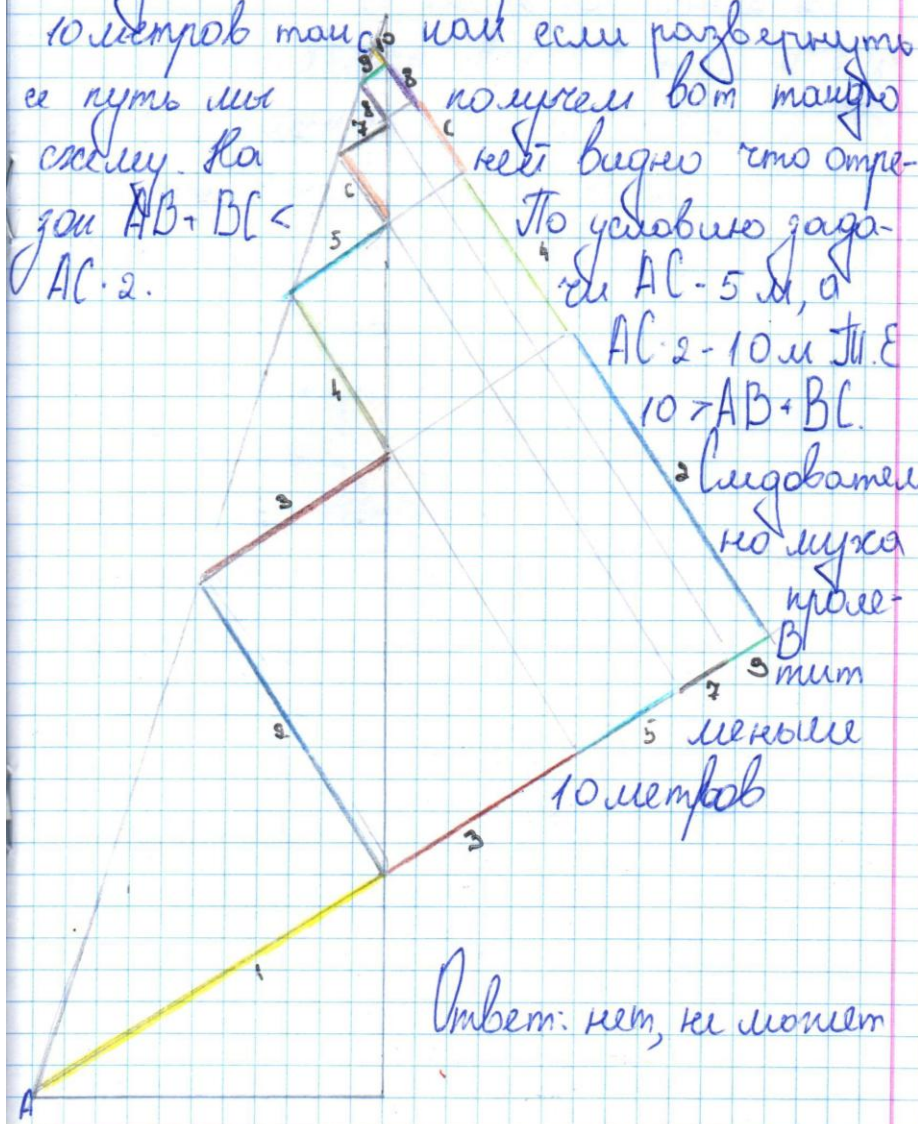 10 метров так как если развернуть
ее путь мы получем вот такую
схему. На ней видно что отре-
зок AB + BC < По условию зада-
AC · 2. чи AC - 5 м, а
AC · 2 - 10 м Т.Е
10 > AB + BC.
Следовател
но муха
проле-
тит
меньше
10 метров
C
10
9
8
8
7
6
6
5
4
4
3
2
2
B
9
7
5
3
1
A
Ответ: нет, не может